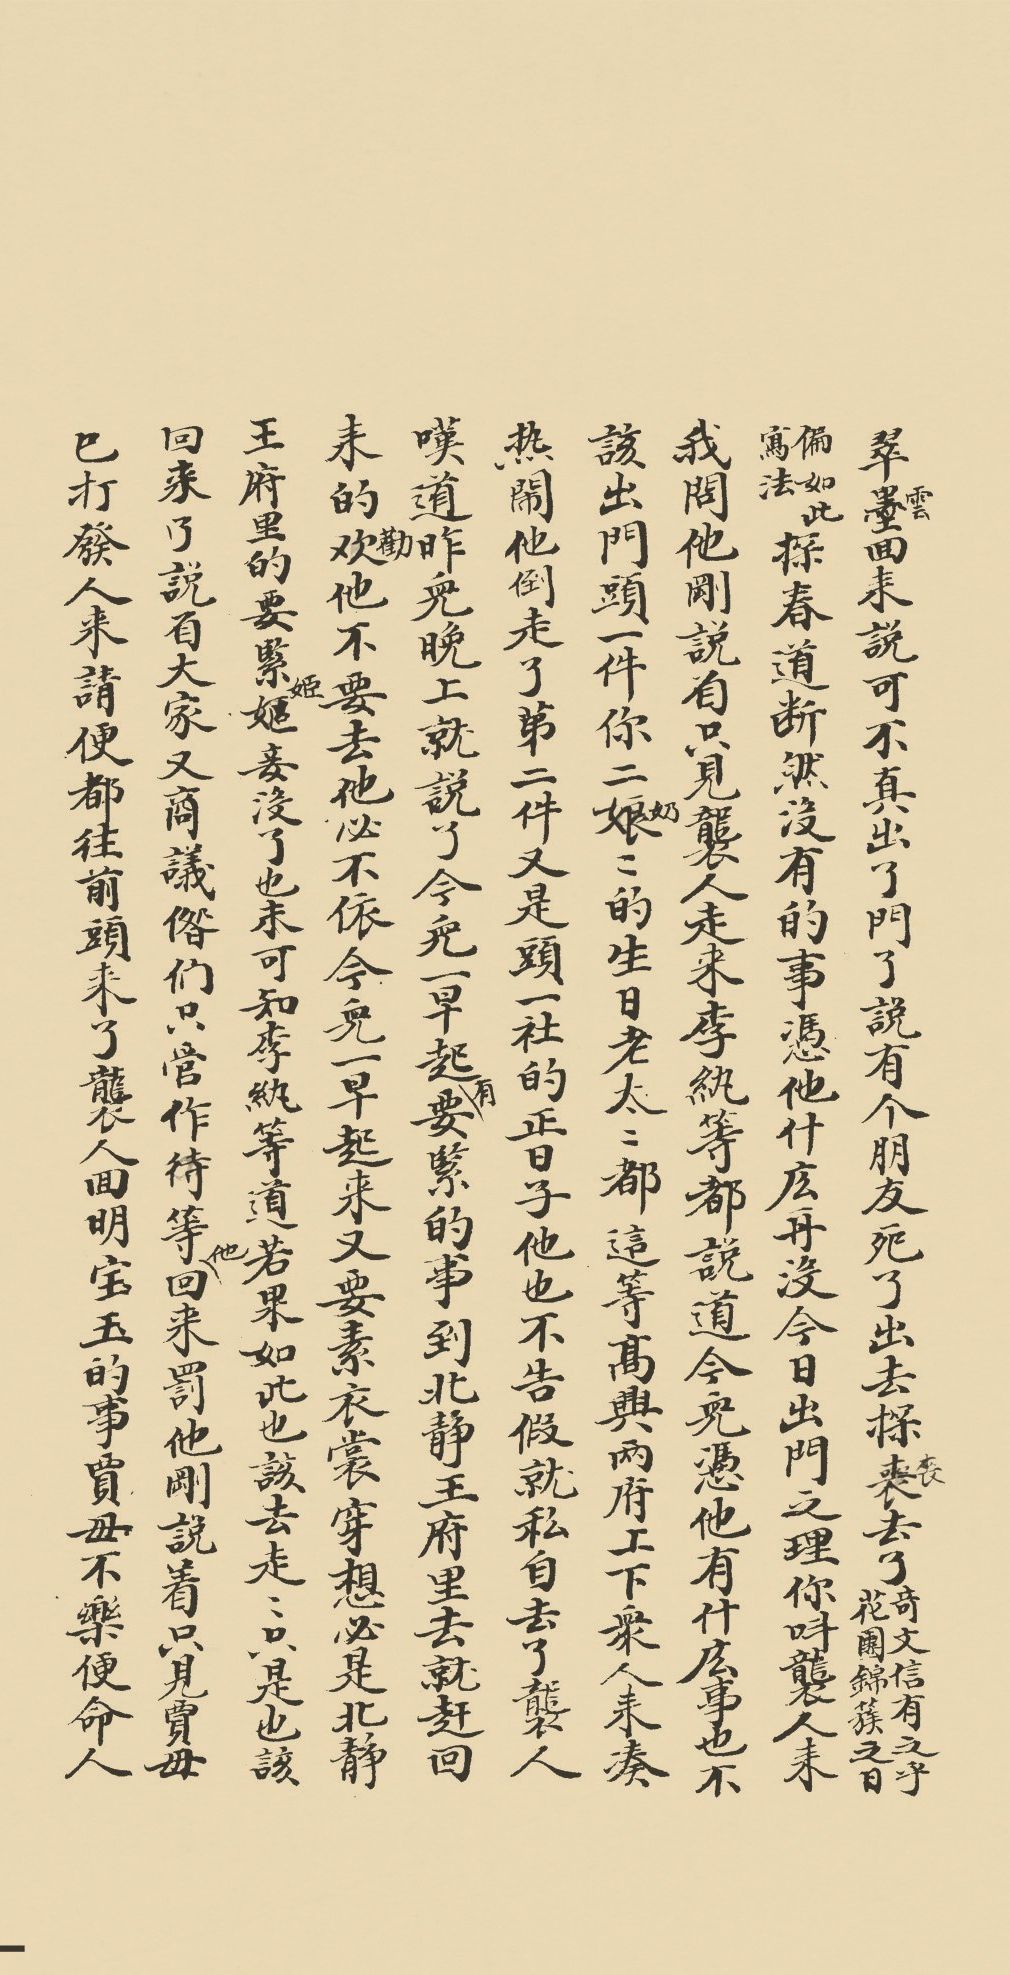 翠墨雲回来説可不真出了門了説有个朋友死了出去探喪喪去了奇文信有之乎花團錦簇之日
偏如此寫法探春道断然没有的事憑他什庅再没今日出門之理你呌襲人来
我問他剛説着只見襲人走来李紈等都説道今兒憑他有什庅事也不
該出門頭一件你二娘奶〻的生日老太〻都這等髙興两府上下衆人来凑
热鬧他倒走了第二件又是頭一社的正日子他也不告假就私自去了襲人
嘆道昨兒晚上就説了今兒一早起有要緊的事到北静王府里去就赶回
来的劝勸他不要去他必不依今兒一早起来又要素衣裳穿想必是北静
王府里的要緊姬姬妾没了也未可知李紈等道若果如此也該去走〻只是也該
回来了説着大家又商議偺们只管作诗等他回来罰他剛説着只見賈母
已打發人来請便都往前頭来了襲人回明宝玉的事賈母不樂便命人